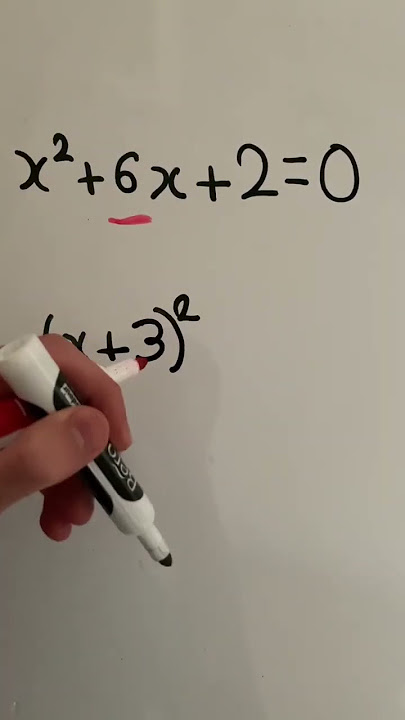 x²+6x+2=0
(x+3)²